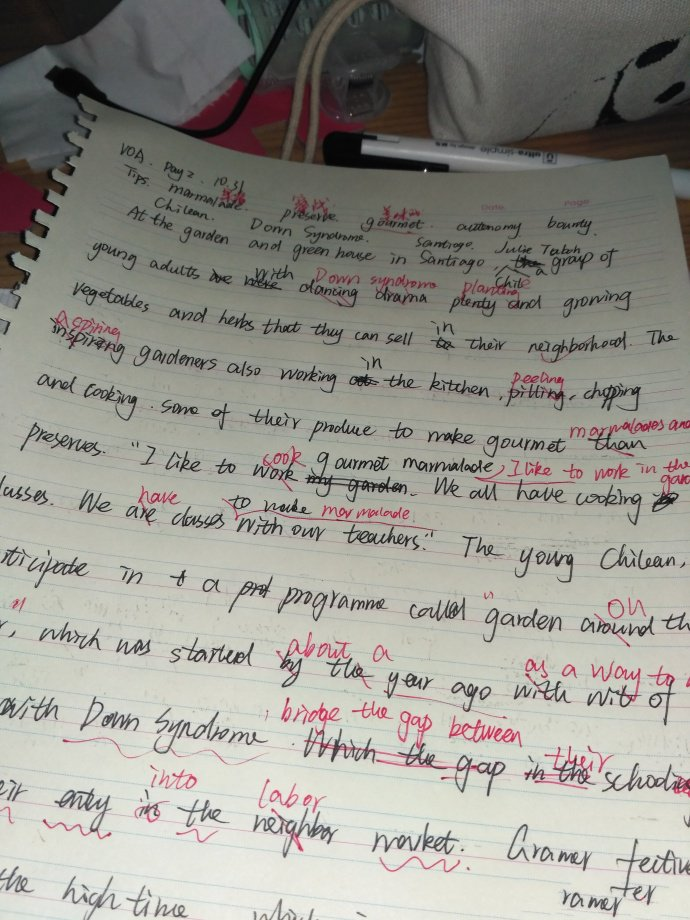 VOA. Day 2. 10.31
Tips: marmalade. preserve gourmet. autonomy bounty.
Chilean. Down Syndrome. Santiago. Julie
Date Page
ultra-simple
At the garden and green house in Santiago the a group of
Chile
young adults with dancing drama plenty and growing
Down syndrome planting
vegetables and herbs that they can sell in their neighborhood. The
Aspiring
inspiring gardeners also working in the kitchen, pilling, chopping
peeling
and cooking. some of their produce to make gourmet than
marmalades and
preserves. "I like to work gourmet marmalade my garden. We all have cooking
cook I like to work in the
classes. We are classes with our teachers." The young Chilean,
have to make marmalade
participate in a programme called "garden around th
on
, which was started by the year ago with wit of
about a as a way to
with Down Syndrome. Which the gap in the
bridge the gap between their
entry in the neighbor market. Gramer
into labor
the high time